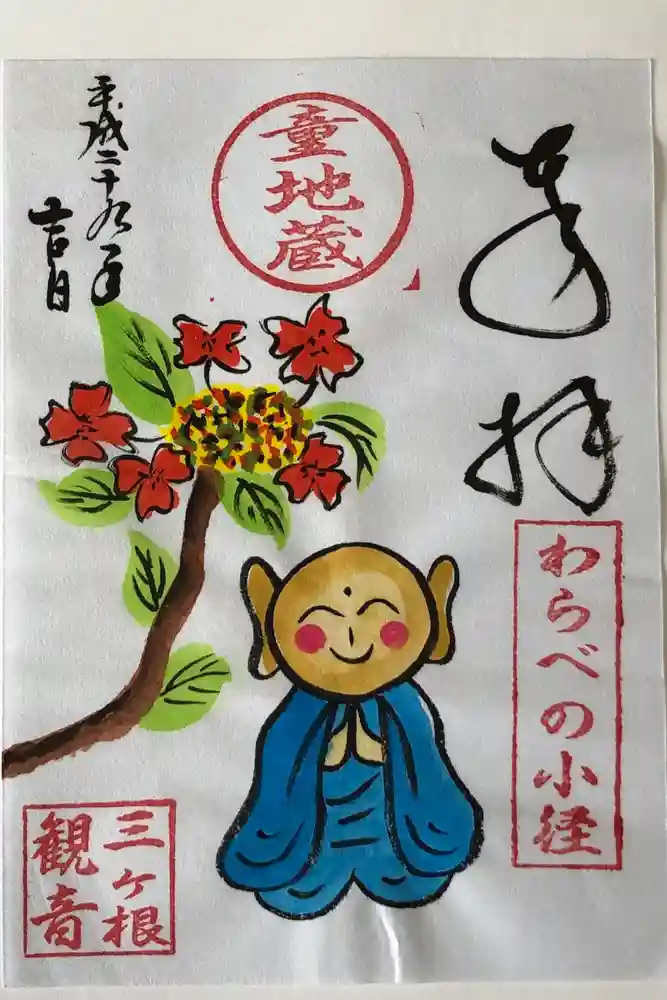 奉拝
わらべの小径
童地蔵
平成二十九年
吉日
三ヶ根
観音